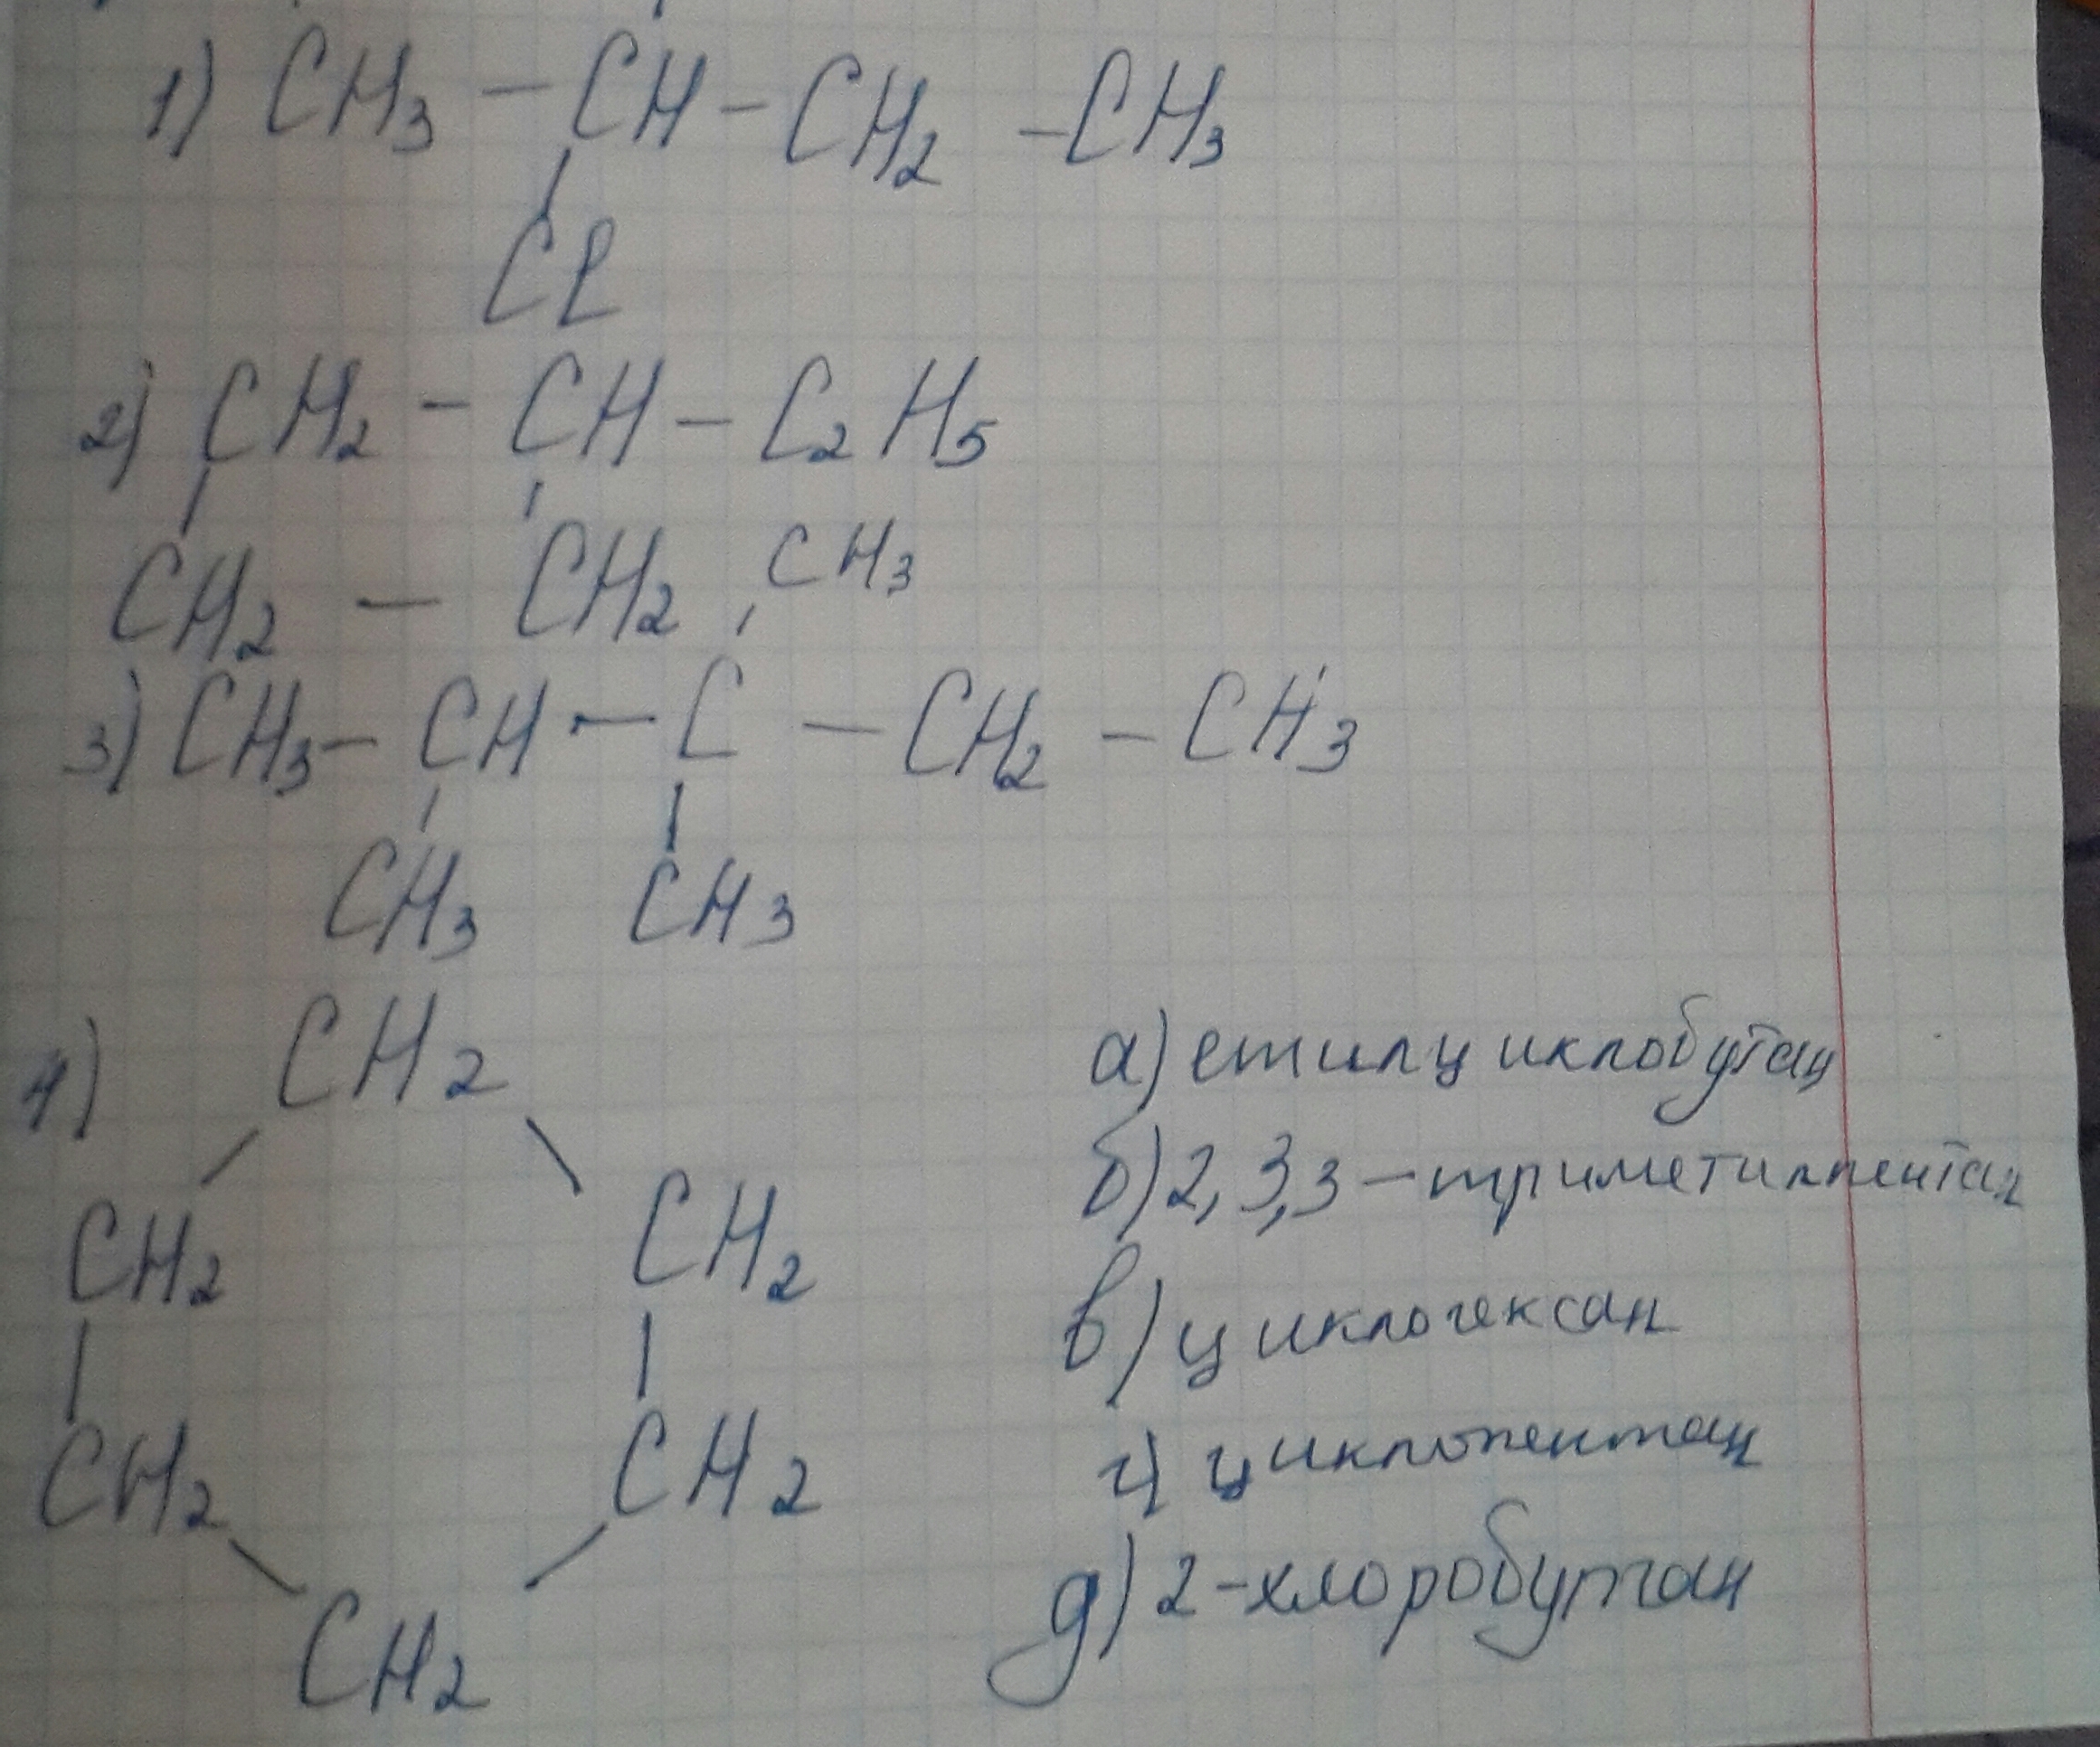 1) CH3 – CH – CH2 – CH3
Cl
2) CH2 – CH – C2H5
CH2 – CH2
CH3
3) CH3 – CH – C – CH2 – CH3
CH3 CH3
4) CH2
CH2 CH2
CH2 CH2
CH2
а) етилциклобутан
б) 2,3,3 – триметилпентан
в) циклогексан
г) циклопентан
д) 2-хлоробутан